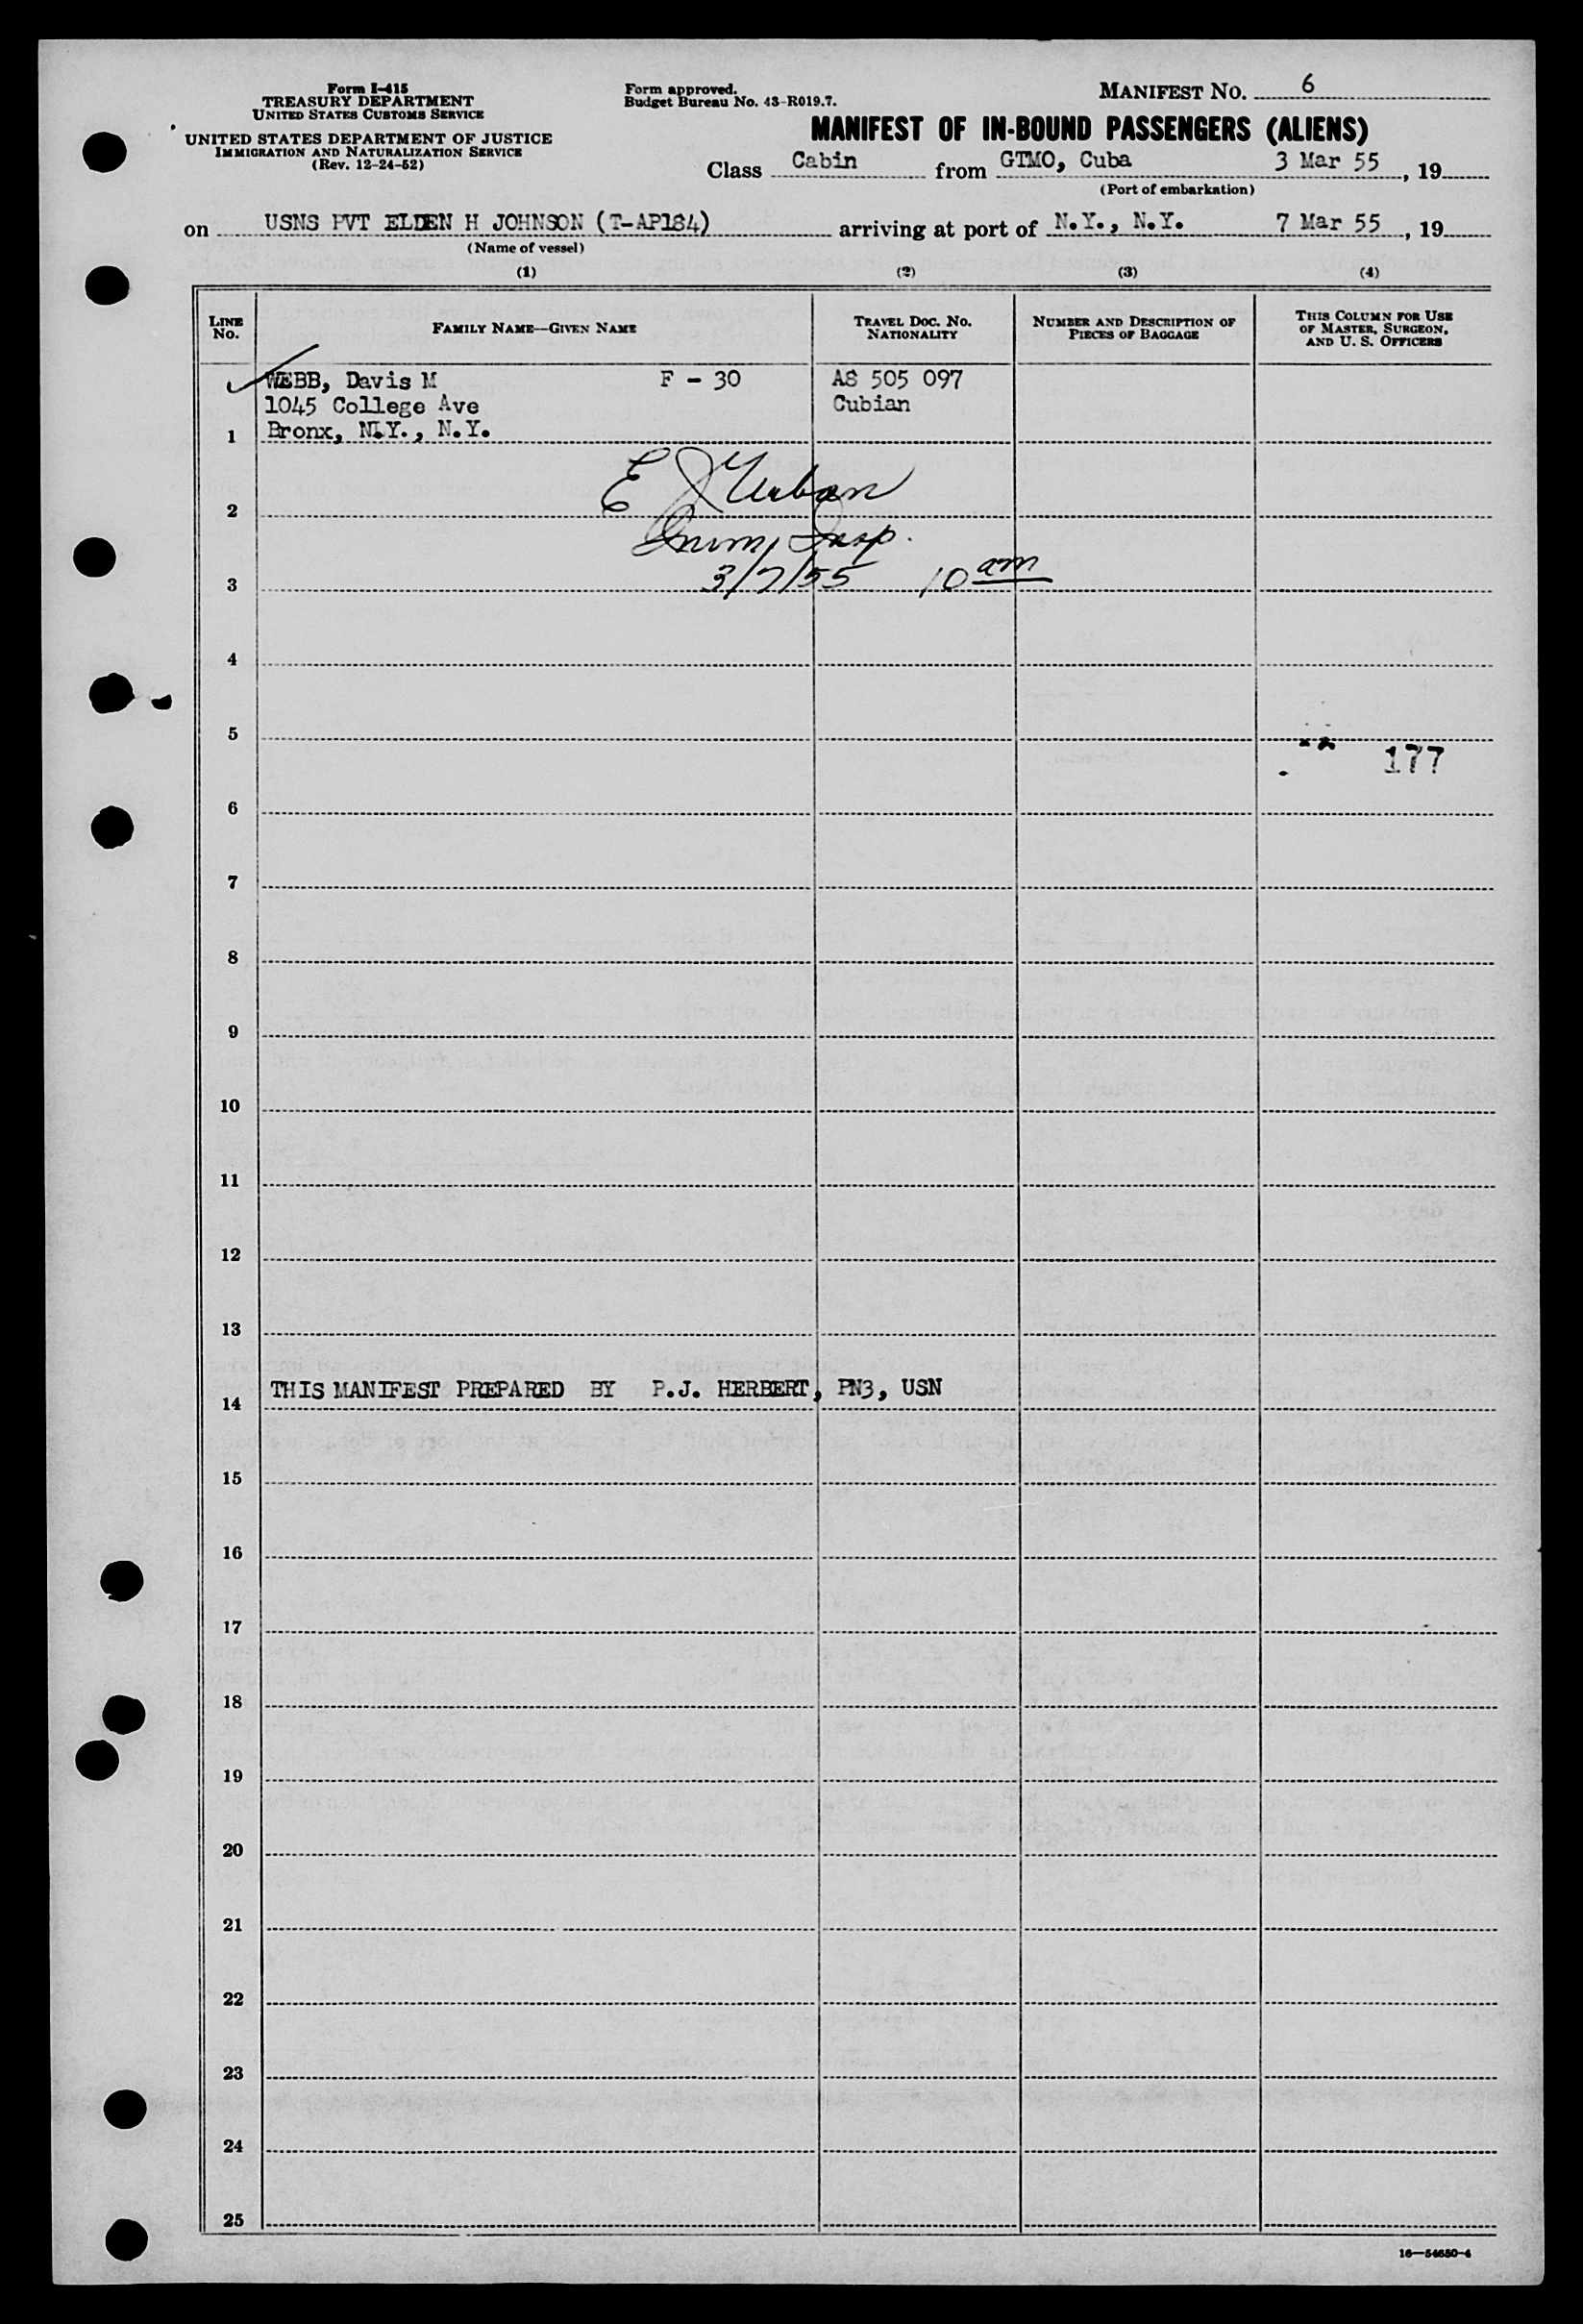 Form I-415
TREASURY DEPARTMENT
UNITED STATES CUSTOMS SERVICE
UNITED STATES DEPARTMENT OF JUSTICE
IMMIGRATION AND NATURALIZATION SERVICE
(Rev. 12-24-52)
Form approved.
Budget Bureau No. 43-R019.7.
MANIFEST NO. 6
MANIFEST OF IN-BOUND PASSENGERS (ALIENS)
Class Cabin from GTMO, Cuba 3 Mar 55, 19
(Port of embarkation)
on USNS PVT ELDEN H JOHNSON (T-AP184) arriving at port of N.Y., N.Y. 7 Mar 55, 19
(Name of vessel)
(1) (2) (3) (4)
LINE No. FAMILY NAME—GIVEN NAME TRAVEL DOC. NO. NATIONALITY NUMBER AND DESCRIPTION OF PIECES OF BAGGAGE THIS COLUMN FOR USE OF MASTER, SURGEON, AND U. S. OFFICERS
WEBB, Davis M F - 30 A8 505 097
1045 College Ave Cubian
1 Bronx, N.Y., N.Y.
E J Urban
2
Imm, Insp.
3 3/7/55 10 am
4
5
177
6
7
8
9
10
11
12
13
THIS MANIFEST PREPARED BY P.J. HERBERT, PN3, USN
14
15
16
17
18
19
20
21
22
23
24
25
16—54650-4